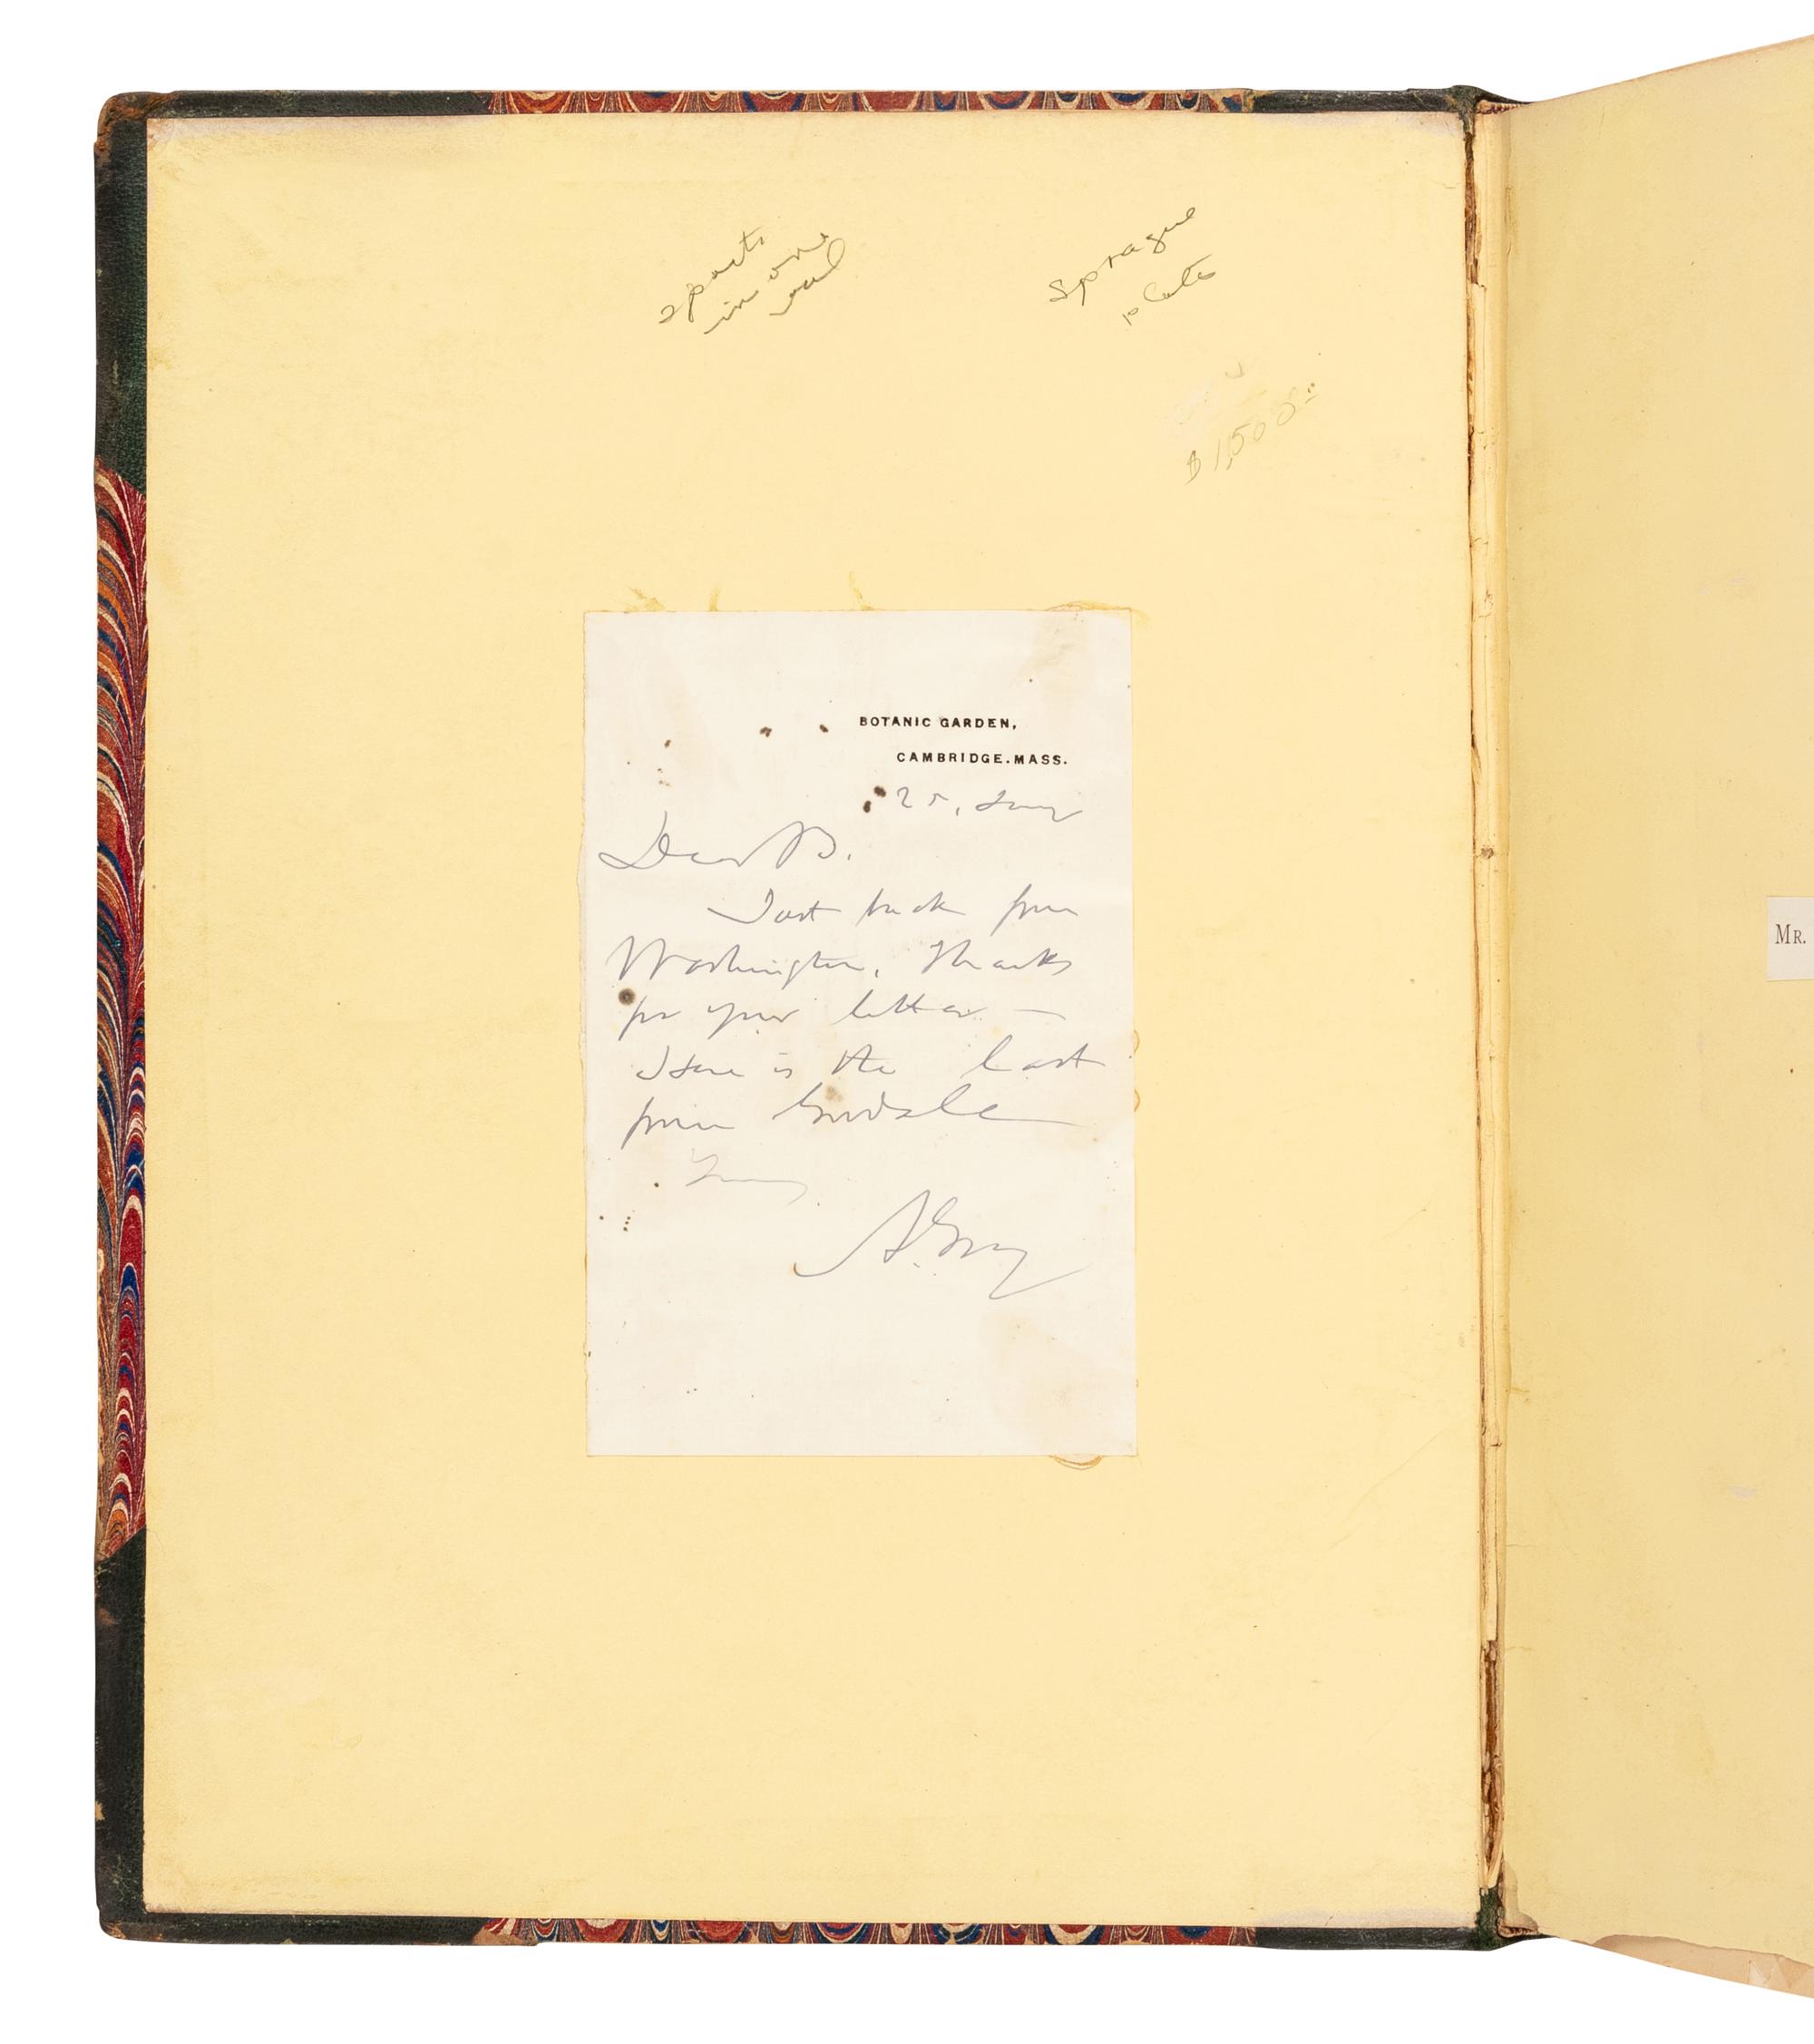 2 parts
in one
vol
Sprague
plates
$1,500.00
BOTANIC GARDEN,
CAMBRIDGE. MASS.
25, Jany
Dear B.
Just back from
Washington. Thanks
for your letter —
Here is the last
from Goodale
Yours
A. Gray
MR.